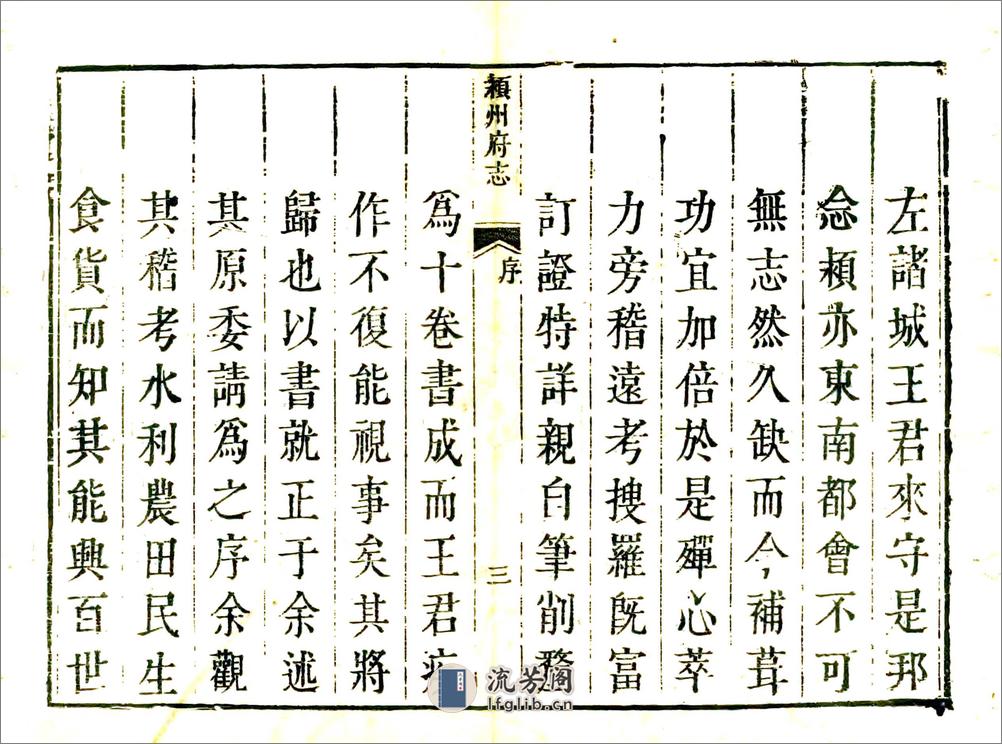 左諸城王君來守是邦
念潁亦東南都會不可
無志然久缺而今補葺
功宜加倍於是殫心萃
力旁稽遠考搜羅旣富
訂證特詳親自筆削務
潁州府志
序
三
爲十卷書成而王君疾
作不復能視事矣其將
歸也以書就正于余述
其原委請爲之序余觀
其稽考水利農田民生
食貨而知其能興百世
流芳阁
lfglib.cn